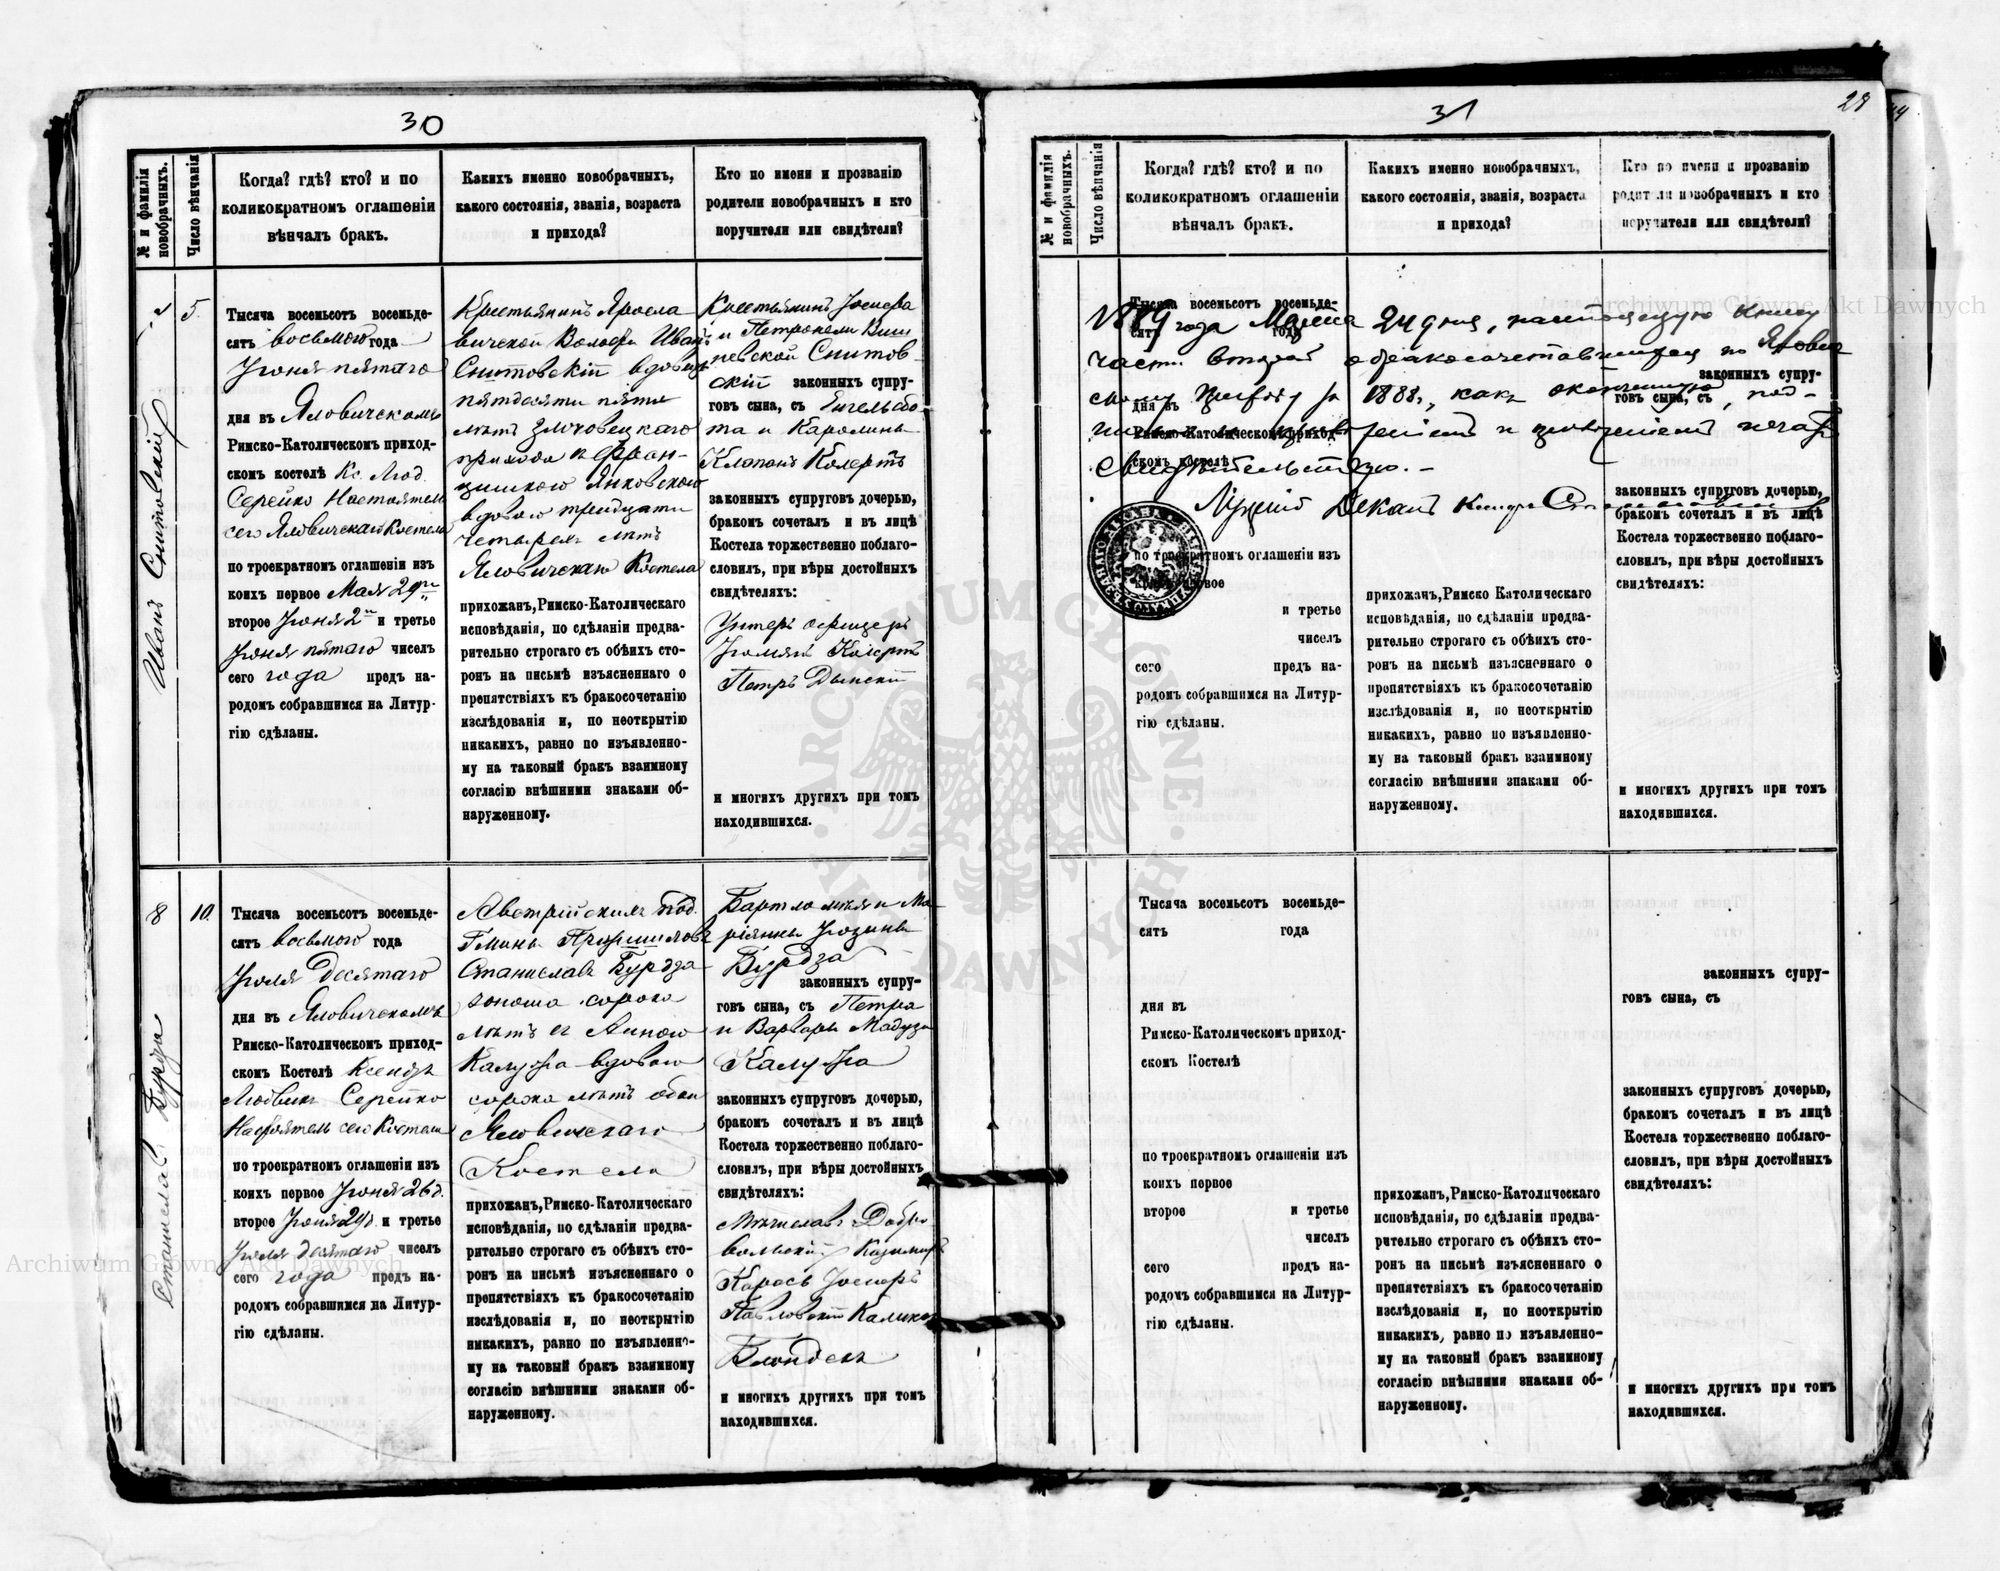 30
№ и фамилія новобрачныхъ.
Число вѣнчанія
Когда? гдѣ? кто? и по
коликократномъ оглашеніи
вѣнчалъ бракъ.
Какихъ именно новобрачныхъ,
какого состоянія, званія, возраста
и прихода?
Кто по имени и прозванію
родители новобрачныхъ и кто
поручители или свидѣтели?
Иванъ Снитовскій
5.
Тысяча восемьсотъ восемьде-
сятъ восьмого года
Іюня пятаго
дня въ Яловичскомъ
Римско-Католическомъ приход-
скомъ костелѣ Кс. Люд.
Серейко Настоятель
сего Яловичскаго Костела
по троекратномъ оглашеніи изъ
коихъ первое Мая 29го
второе Іюня 2го и третье
Іюня пятаго чиселъ
сего года предъ на-
родомъ собравшимся на Литур-
гію сдѣланы.
Крестьянинъ Яросла
вичской Волости Иванъ
Снитовскій вдовецъ
пятдесяти пяти
лѣтъ
прихода съ Фран-
цишкою Янковскою
вдовою тридцати
четырехъ лѣтъ
Яловичскаго Костела
прихожанъ, Римско-Католическаго
исповѣданія, по сдѣланіи предва-
рительно строгаго съ обѣихъ сто-
ронъ на письмѣ изъясненнаго о
препятствіяхъ къ бракосочетанію
изслѣдованія и, по неоткрытію
никакихъ, равно по изъявленно-
му на таковый бракъ взаимному
согласію внѣшними знаками об-
наруженному.
Крестьянинъ Іосифа
и Петронели Виш
невской Снитов-
скій законныхъ супру-
говъ сына, съ Енгельбо-
та и Каролины
законныхъ супруговъ дочерью,
бракомъ сочеталъ и въ лицѣ
Костела торжественно поблаго-
словилъ, при вѣры достойныхъ
свидѣтеляхъ:
Унтеръ офицеръ
Петръ Дынскій
и многихъ другихъ при томъ
находившихся.
8
Станиславъ Бурдза
10.
Тысяча восемьсотъ восемьде-
сятъ восьмого года
Іюля Десятаго
дня въ Яловичскомъ
Римско-Католическомъ приход-
скомъ Костелѣ Ксендзъ
Людвикъ Серейко
Настоятель сего Костела
по троекратномъ оглашеніи изъ
коихъ первое Іюня 26д.
второе Іюня 29д. и третье
Іюля десятаго чиселъ
сего года предъ на-
родомъ собравшимся на Литур-
гію сдѣланы.
Австрійскихъ под.
Гмины
Станиславъ Бурдза
юноша сорока
лѣтъ съ Анною
вдовою
сорока лѣтъ обои
Яловичскаго
Костела
прихожанъ, Римско-Католическаго
исповѣданія, по сдѣланіи предва-
рительно строгаго съ обѣихъ сто-
ронъ на письмѣ изъясненнаго о
препятствіяхъ къ бракосочетанію
изслѣдованія и, по неоткрытію
никакихъ, равно по изъявленно-
му на таковый бракъ взаимному
согласію внѣшними знаками об-
наруженному.
Бартломея и Ма-
ріянны
Бурдза
законныхъ супру-
говъ сына, съ Петра
и Варвары
законныхъ супруговъ дочерью,
бракомъ сочеталъ и въ лицѣ
Костела торжественно поблаго-
словилъ, при вѣры достойныхъ
свидѣтеляхъ:
Мечиславъ Добро
вольскій Казимиръ
Карась Іосифъ
Павловскій
и многихъ другихъ при томъ
находившихся.
31
28
№ и фамилія новобрачныхъ.
Число вѣнчанія
Когда? гдѣ? кто? и по
коликократномъ оглашеніи
вѣнчалъ бракъ.
Какихъ именно новобрачныхъ,
какого состоянія, званія, возраста
и прихода?
Кто по имени и прозванію
родители новобрачныхъ и кто
поручители или свидѣтели?
1889 года Марта 24 дня, настоящую книгу
части второй о бракосочетавшихся по Ялович
скому приходу за 1888, какъ оконченную, под-
писью и приложеніемъ печати
свидѣтельствую.
Луцкій Деканъ
Тысяча восемьсотъ восемьде-
сятъ года
дня въ
Римско-Католическомъ приход-
скомъ костелѣ
по троекратномъ оглашеніи изъ
коихъ первое
и третье
чиселъ
сего предъ на-
родомъ собравшимся на Литур-
гію сдѣланы.
прихожанъ, Римско Католическаго
исповѣданія, по сдѣланіи предва-
рительно строгаго съ обѣихъ сто-
ронъ на письмѣ изъясненнаго о
препятствіяхъ къ бракосочетанію
изслѣдованія и, по неоткрытію
никакихъ, равно по изъявленно-
му на таковый бракъ взаимному
согласію внѣшними знаками об-
наруженному.
законныхъ супру-
говъ сына, съ
законныхъ супруговъ дочерью,
бракомъ сочеталъ и въ лицѣ
Костела торжественно поблаго-
словилъ, при вѣры достойныхъ
свидѣтеляхъ:
и многихъ другихъ при томъ
находившихся.
Тысяча восемьсотъ восемьде-
сятъ года
дня въ
Римско-Католическомъ приход-
скомъ Костелѣ
по троекратномъ оглашеніи изъ
коихъ первое
второе и третье
чиселъ
сего предъ на-
родомъ собравшимся на Литур-
гію сдѣланы.
прихожанъ, Римско-Католическаго
исповѣданія, по сдѣланіи предва-
рительно строгаго съ обѣихъ сто-
ронъ на письмѣ изъясненнаго о
препятствіяхъ къ бракосочетанію
изслѣдованія и, по неоткрытію
никакихъ, равно по изъявленно-
му на таковый бракъ взаимному
согласію внѣшними знаками об-
наруженному.
законныхъ супру-
говъ сына, съ
законныхъ супруговъ дочерью,
бракомъ сочеталъ и въ лицѣ
Костела торжественно поблаго-
словилъ, при вѣры достойныхъ
свидѣтеляхъ:
и многихъ другихъ при томъ
находившихся.
Archiwum Główne Akt Dawnych
Archiwum Główne Akt Dawnych
ARCHIWUM GŁÓWNE AKT DAWNYCH